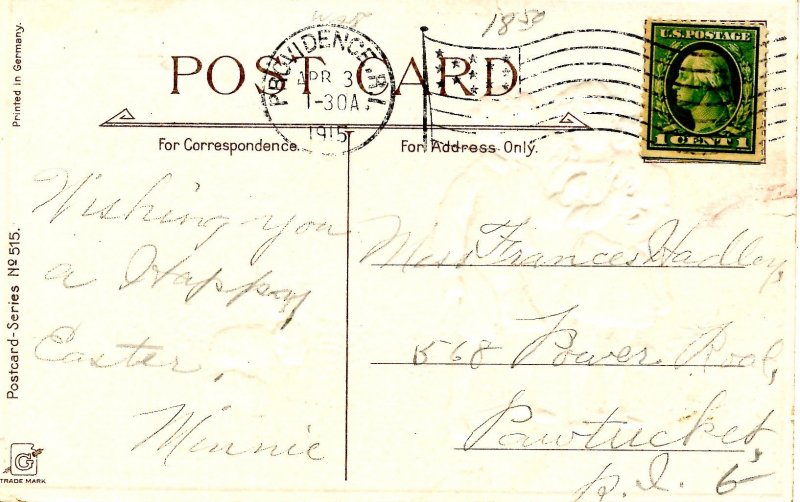 1850
POST CARD
PROVIDENCE, R.I.
APR 3
1-30A
1915
U.S. POSTAGE
1 CENT 1
Printed in Germany.
For Correspondence.
For Address Only.
Postcard-Series No 515.
Wishing you
a Happy
Easter,
Minnie
Miss Frances Hadley,
568 Power Road,
Pawtucket,
R.I.
G
TRADE MARK